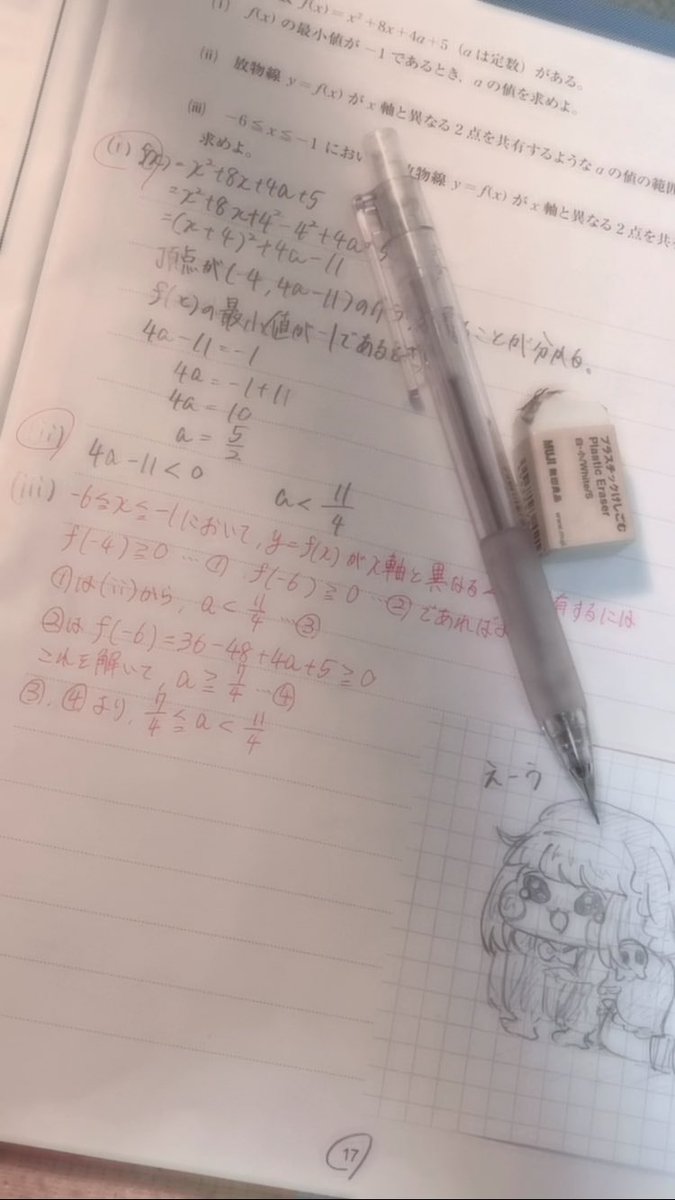 f(x)=x²+8x+4a+5 (aは定数) がある。
(i) f(x) の最小値が −1 であるとき、a の値を求めよ。
(ii) 放物線 y=f(x) が x 軸と異なる 2 点を共有するような a の値の範囲
(iii) −6≦x≦−1 におい 放物線 y=f(x) が x 軸と異なる 2 点を共
求めよ。
(i) f(x)=x²+8x+4a+5
=x²+8x+4²-4²+4a+5
=(x+4)²+4a-11
頂点が(-4, 4a-11)の ことが分かる。
f(x)の最小値が-1であると
4a-11=-1
4a=-1+11
4a=10
a=5/2
(ii) 4a-11<0 a<11/4
(iii) -6≦x≦-1において, y=f(x)がx軸と異なる 有するには
f(-4)≧0 … ①, f(-6)≧0 … ② であれば
①は(ii)から, a<11/4 … ③
②は f(-6)=36-48+4a+5≧0
これを解いて, a≧7/4 … ④
③, ④より, 7/4≦a<11/4
プラスチックけしごむ
Plastic Eraser
白・小/White/S
MUJI 無印良品
www.muji
えーう
17